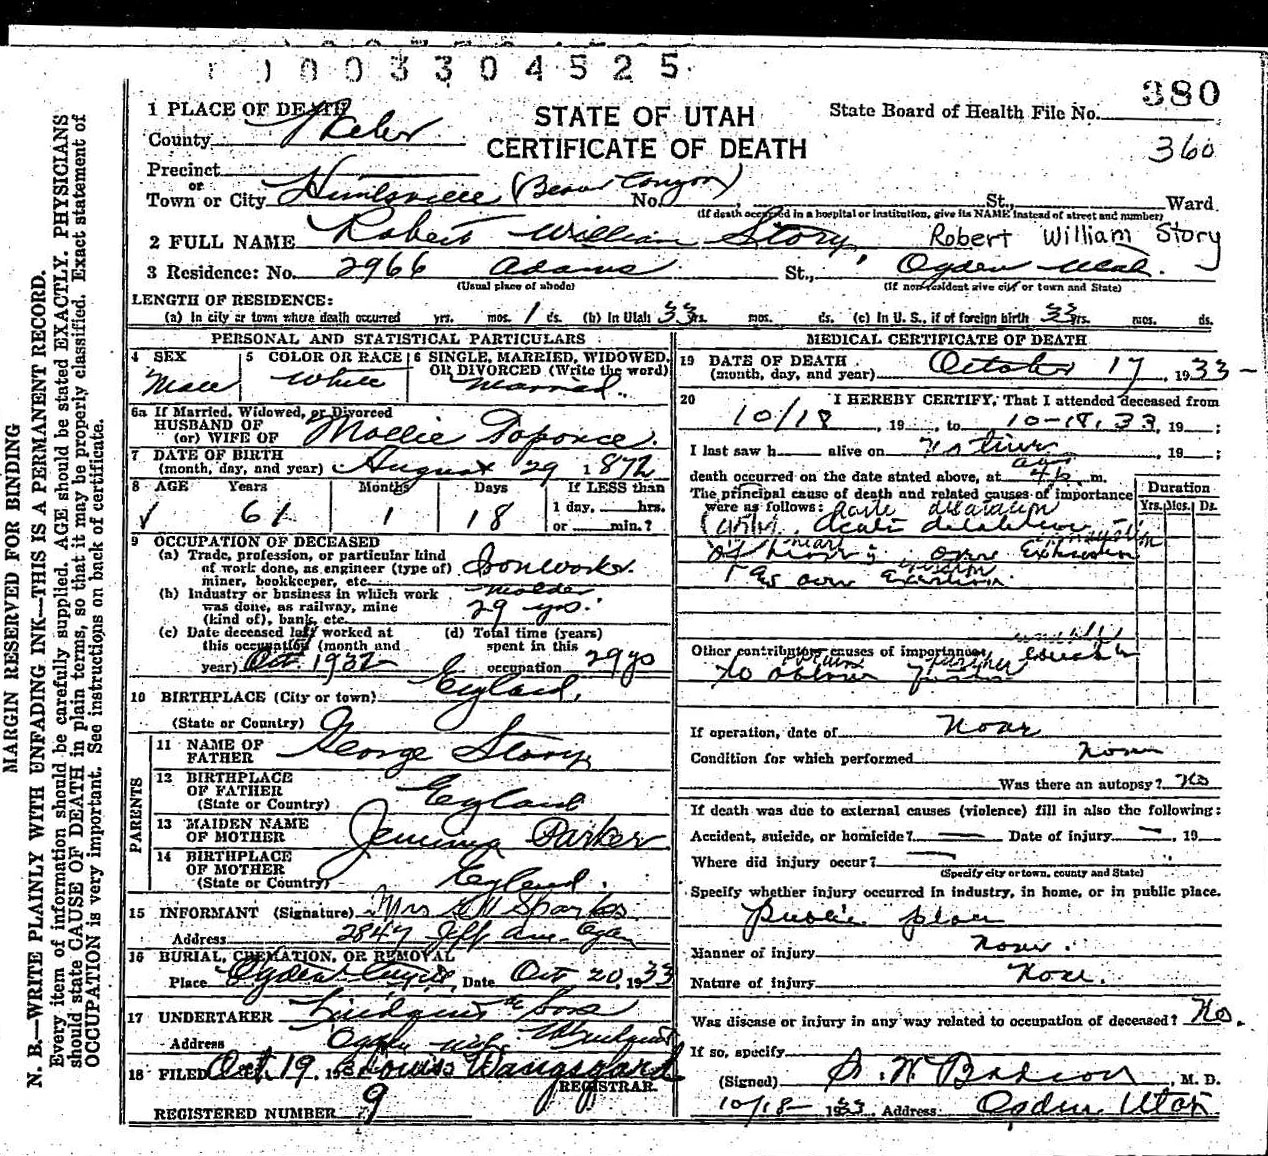 1 0 0 3 3 0 4 5 2 5
380
1 PLACE OF DEATH
STATE OF UTAH
State Board of Health File No.
County Weber
CERTIFICATE OF DEATH
360
Precinct
or
Town or City Huntsville (Beaver Canyon) No. , St., Ward
(If death occurred in a hospital or institution, give its NAME instead of street and number)
2 FULL NAME Robert William Story, Robert William Story
3 Residence: No. 2966 Adams St., Ogden Utah.
(Usual place of abode) (If non-resident give city or town and State)
LENGTH OF RESIDENCE:
(a) In city or town where death occurred yrs. mos. 1 ds. (b) In Utah 33 yrs. mos. ds. (c) In U. S., if of foreign birth 33 yrs. mos. ds.
PERSONAL AND STATISTICAL PARTICULARS
4 SEX
Male
5 COLOR OR RACE
White
6 SINGLE, MARRIED, WIDOWED,
OR DIVORCED (Write the word)
Married.
6a If Married, Widowed, or Divorced
HUSBAND OF
(or) WIFE OF Mollie Toponce.
7 DATE OF BIRTH
(month, day, and year) August 29 1872
8 AGE Years Months Days If LESS than
61 1 18 1 day, hrs.
or min.?
9 OCCUPATION OF DECEASED
(a) Trade, profession, or particular kind
of work done, as engineer (type of)
miner, bookkeeper, etc. Ironworker
(b) Industry or business in which work
was done, as railway, mine
(kind of), bank, etc. Molder
29 yrs.
(c) Date deceased last worked at
this occupation (month and
year) Oct 1932
(d) Total time (years)
spent in this
occupation 29 yo
10 BIRTHPLACE (City or town) England.
(State or Country)
PARENTS
11 NAME OF
FATHER George Story
12 BIRTHPLACE
OF FATHER
(State or Country) England
13 MAIDEN NAME
OF MOTHER Jemima Parker
14 BIRTHPLACE
OF MOTHER
(State or Country) England.
15 INFORMANT (Signature) Mrs Sparks
Address 2847 Jeff Ave. Ogden
16 BURIAL, CREMATION, OR REMOVAL
Place Ogden City, Date Oct 20, 1933
17 UNDERTAKER Lindquist & Sons
Address Ogden Utah
18 FILED Oct. 19, 193 Louis Wangsgard
REGISTRAR.
REGISTERED NUMBER 9
MEDICAL CERTIFICATE OF DEATH
19 DATE OF DEATH
(month, day, and year) October 17, 1933
20 I HEREBY CERTIFY, That I attended deceased from
10/18, 19 , to 10-18, 33, 19 ;
I last saw h alive on , 19 ;
death occurred on the date stated above, at m.
The principal cause of death and related causes of importance
were as follows: Acute dilatation
Acute dilatation
of heart over exertion
over exertion.
Duration
Yrs. Mos. Ds.
Other contributory causes of importance
If operation, date of None
Condition for which performed None
Was there an autopsy? No
If death was due to external causes (violence) fill in also the following:
Accident, suicide, or homicide? Date of injury , 19
Where did injury occur?
(Specify city or town, county and State)
Specify whether injury occurred in industry, in home, or in public place.
Public place
Manner of injury None.
Nature of injury None.
Was disease or injury in any way related to occupation of deceased? No.
If so, specify
(Signed) , M. D.
10/18- 1933 Address Ogden Utah
MARGIN RESERVED FOR BINDING
N. B.—WRITE PLAINLY WITH UNFADING INK—THIS IS A PERMANENT RECORD.
Every item of information should be carefully supplied. AGE should be stated EXACTLY. PHYSICIANS
should state CAUSE OF DEATH in plain terms, so that it may be properly classified. Exact statement of
OCCUPATION is very important. See instructions on back of certificate.